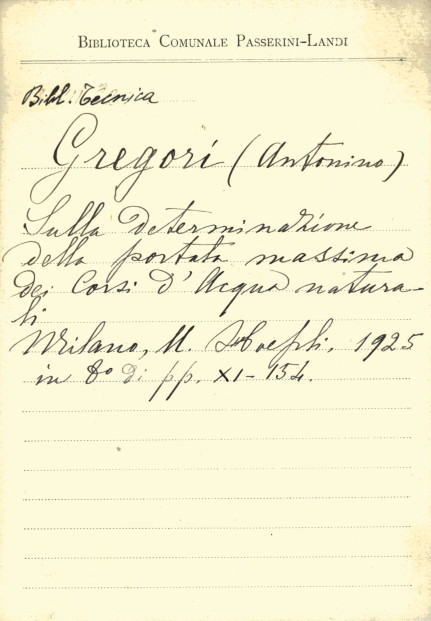 BIBLIOTECA COMUNALE PASSERINI-LANDI
Bibl. Tecnica
Gregori (Antonino)
Sulla determinazione
della portata massima
dei Corsi d'Acqua natura-
li
Milano, U. Hoepli, 1925
in 8° di pp. XI-154.